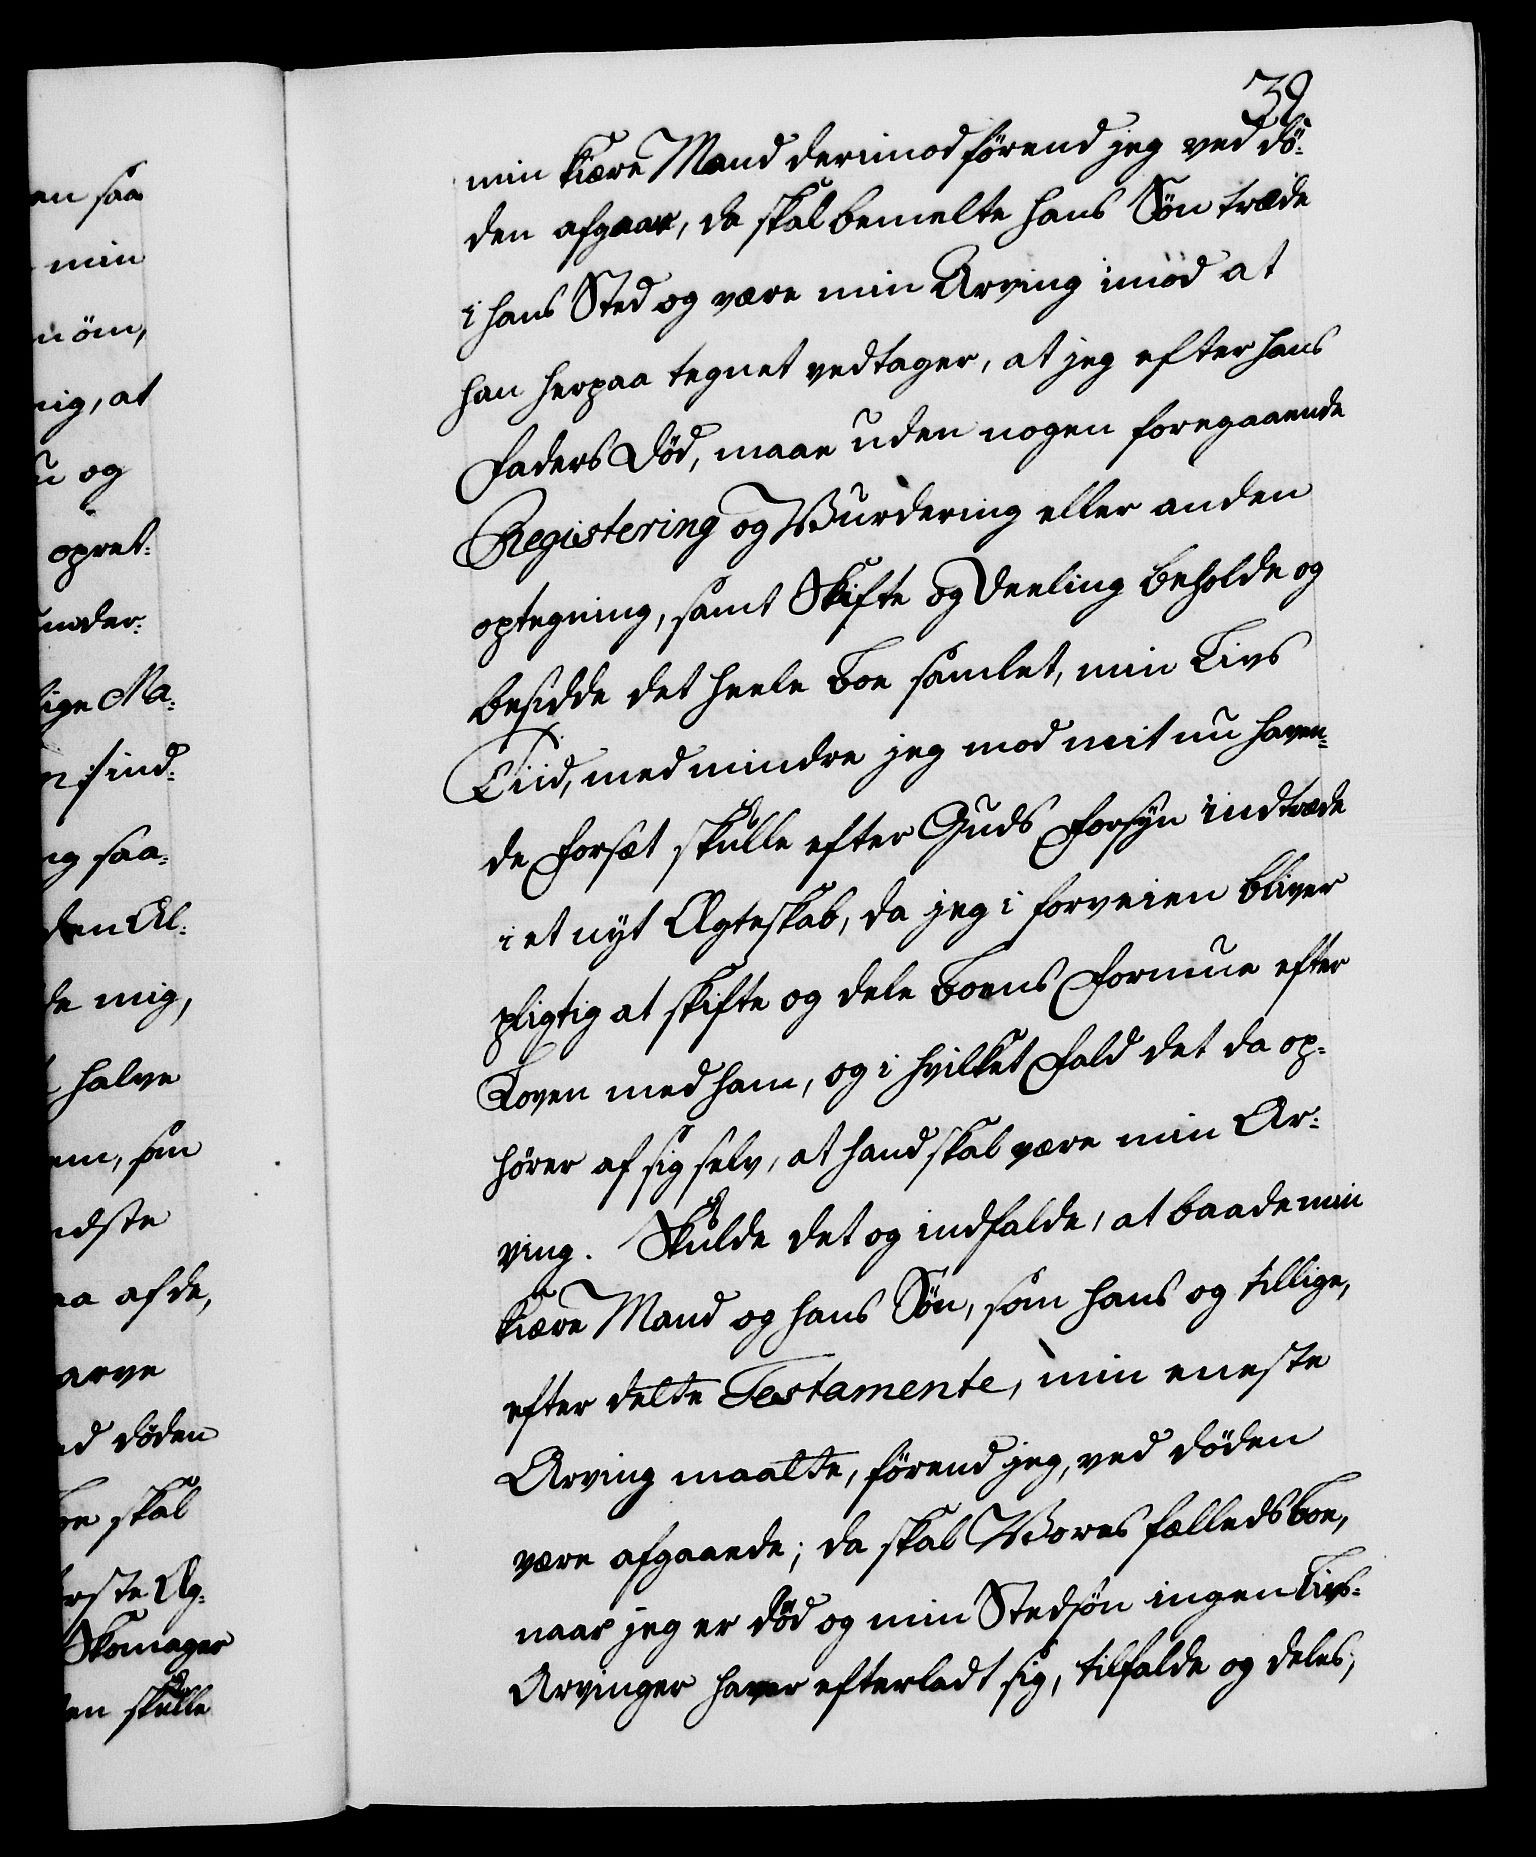 39
min kiære Mand derimod förend jeg ved dö¬
den afgaar, da skal bemelte hans Sön træde
i hans Sted og være min Arving imod at
han herpaa tegnet vedtager, at jeg efter hans
Faders Död, maae uden nogen foregaaende
Registering og Wurdering eller anden
optegning, samt Skifte og Deeling beholde og
besidde det heele Boe samlet, min Livs
Tiid, med mindre jeg mod mit nu haven¬
de Forsæt skulle efter Guds Forsyn indtræde
i et nyt Ægteskab, da jeg i forveien bliver
pligtig at skifte og dele Boens Formue efter
Loven med ham, og i hvilket Fald det da op¬
hører af sig selv, at hand skal være min Ar¬
ving. Skulde det og indfalde, at baade min
kiære Mand og hans Sön, som hans og tillige,
efter dette Testamente, min eneste
Arving maatte, förend jeg, ved döden
være afgaaede; da skal Wores fælleds Boe,
naar jeg er död og min Stedsön ingen Livs¬
Arvinger haver efterladt sig, tilfalde og deles,
en saa
min
öm,
mig, at
og
opret¬
under¬
lige Ma¬
find¬
saa¬
den Al¬
de mig,
halve
em, som
idste
aa afde,
arve
ed döden
oe skal
örste Æg¬
Skomager
en skulle